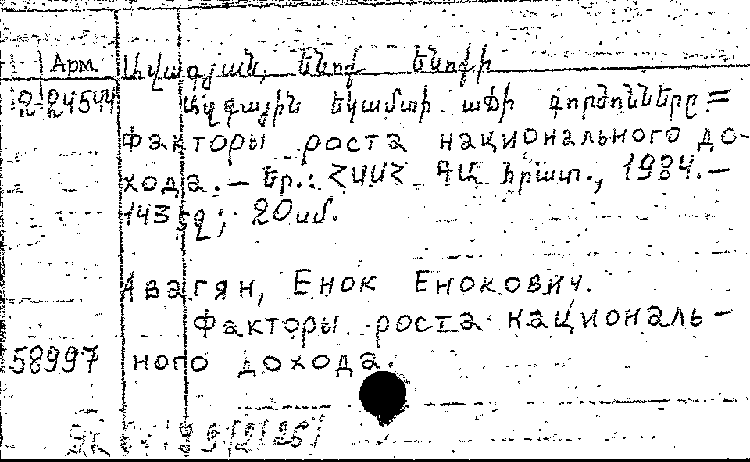 Арм. Ավագյան, Ենոք Ենոքի
2-24544 Ազգային եկամտի աճի գործոնները =
Факторы роста национального до-
хода. — Եր.: ՀՍՍՀ ԳԱ հրատ., 1984. —
143 էջ; 20 սմ.
Авагян, Енок Енокович.
Факторы роста националь-
58997 ного дохода.